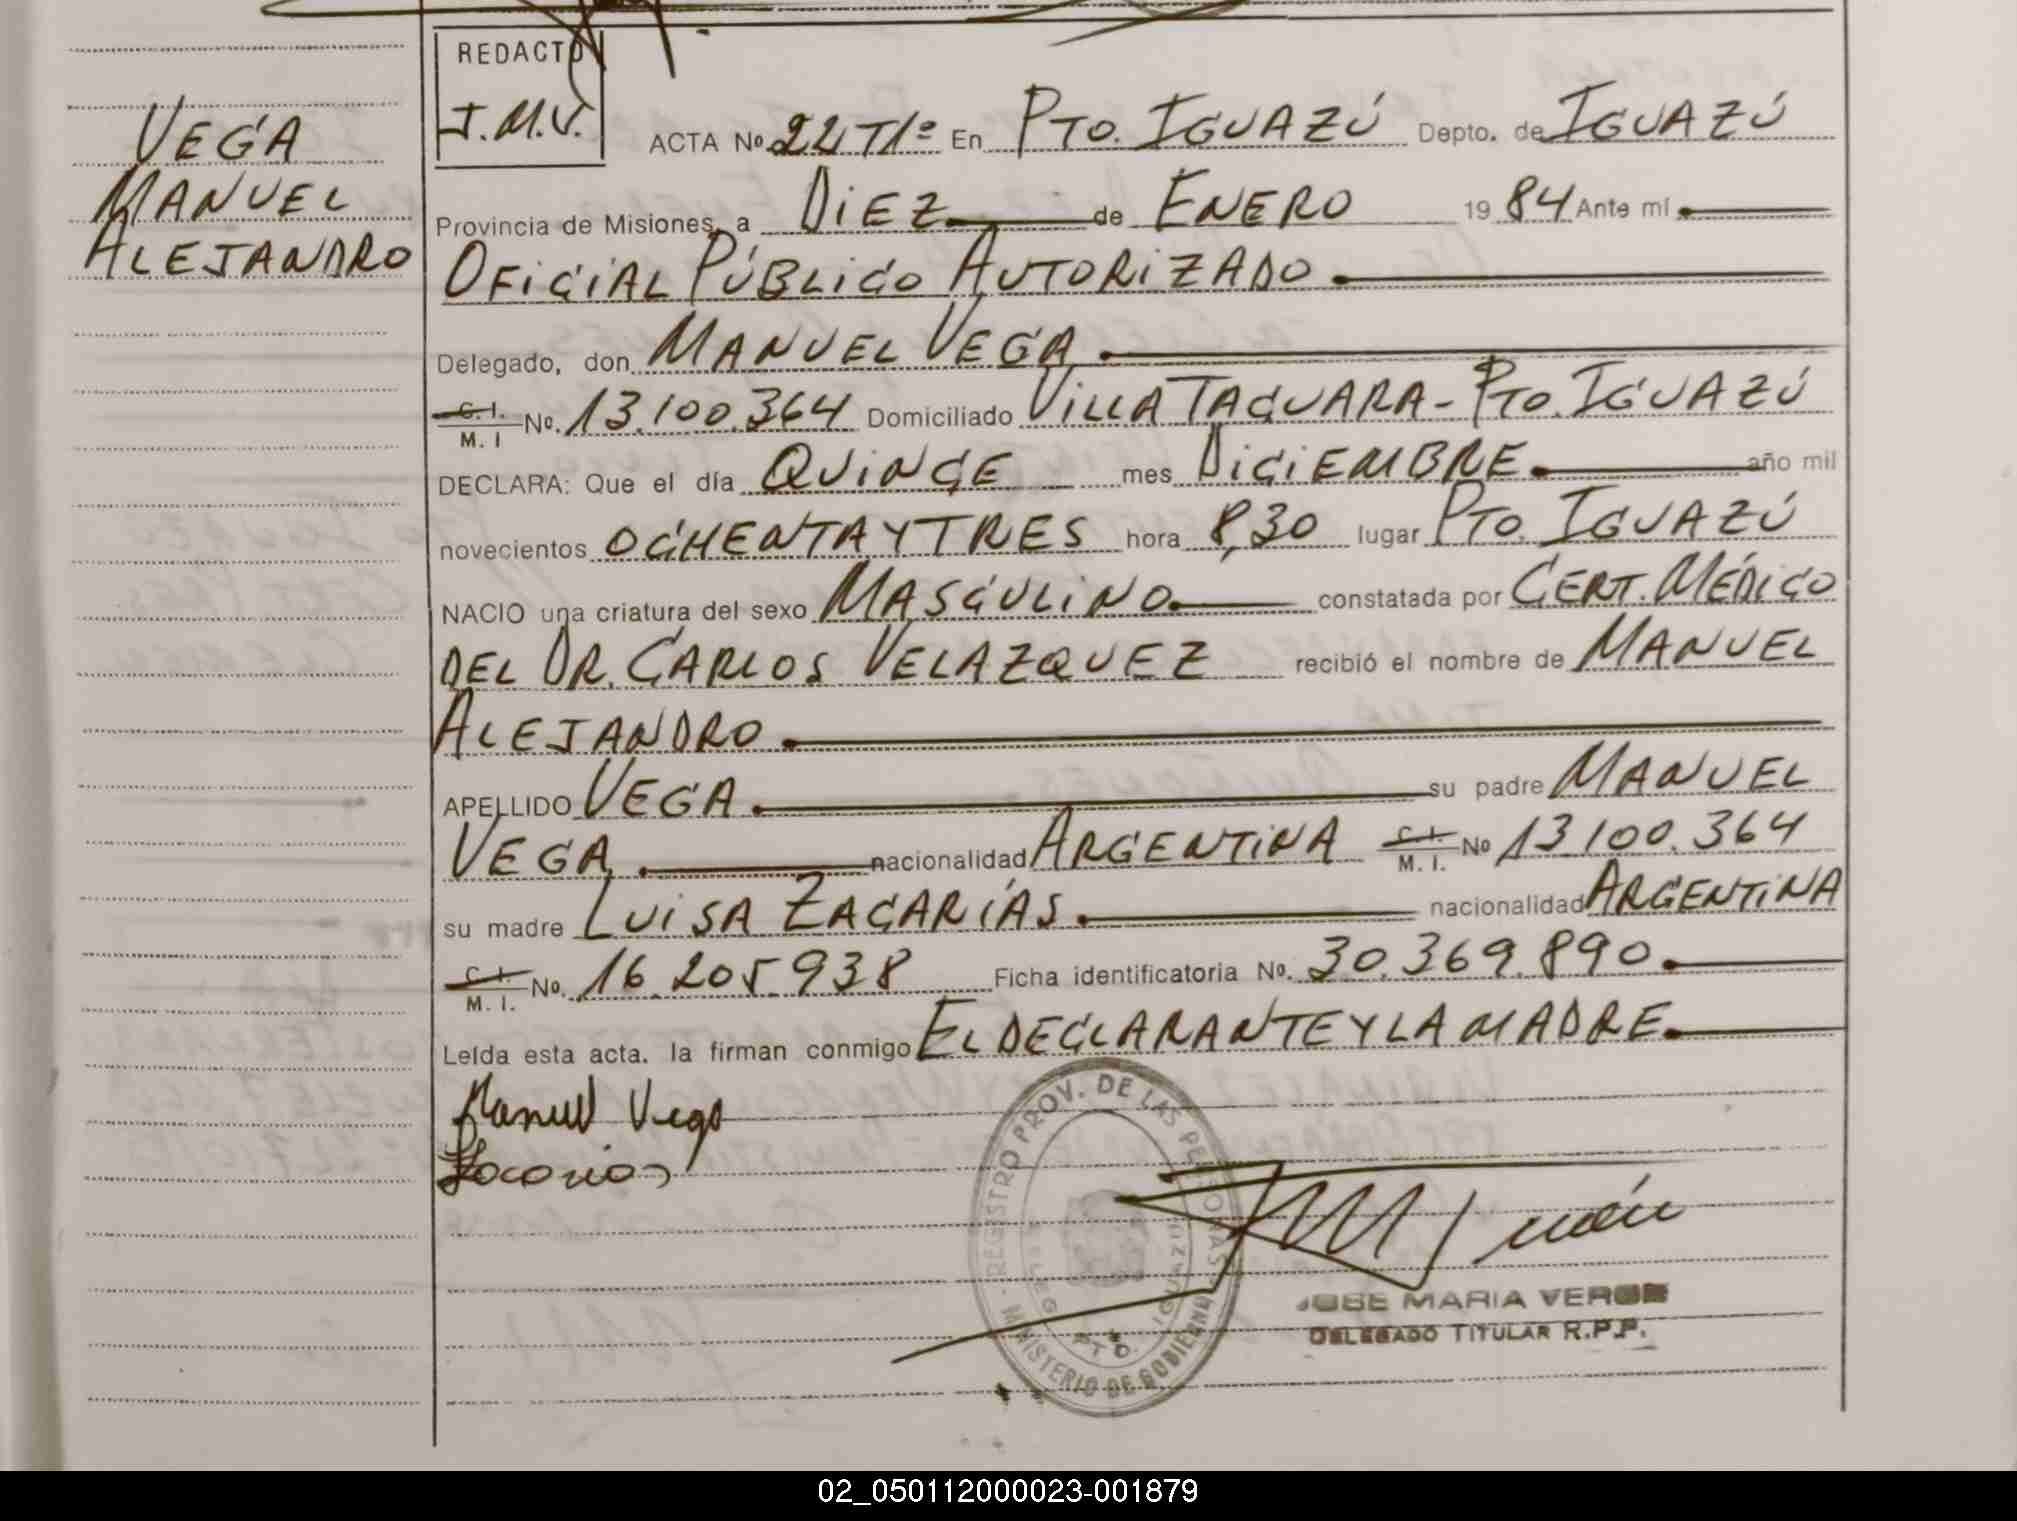 REDACTO
J.M.V.
VEGA
MANUEL
ALEJANDRO
ACTA Nº 22 T1º En PTO. IGUAZÚ Depto. de IGUAZÚ
Provincia de Misiones, a DIEZ de ENERO 19 84 Ante mí
OFICIAL PÚBLICO AUTORIZADO
Delegado, don MANUEL VEGA
C.I. M. I Nº. 13.100.364 Domiciliado VILLA TACUARA - PTO. IGUAZÚ
DECLARA: Que el día QUINCE mes DICIEMBRE año mil
novecientos OCHENTA Y TRES hora 8,30 lugar PTO. IGUAZÚ
NACIO una criatura del sexo MASCULINO constatada por CERT. MÉDICO
DEL DR. CARLOS VELAZQUEZ recibió el nombre de MANUEL
ALEJANDRO
APELLIDO VEGA su padre MANUEL
VEGA nacionalidad ARGENTINA C.I. M. I. Nº 13.100.364
su madre LUISA ZACARÍAS nacionalidad ARGENTINA
C.I. M. I. Nº. 16.205.938 Ficha identificatoria Nº. 30.369.890
Leída esta acta. la firman conmigo EL DECLARANTE Y LA MADRE
Manuel Vega
Zacarias
REGISTRO PROV. DE LAS PERSONAS
MINISTERIO DE GOBIERNO
DELEG. PTO. IGUAZU
JOSE MARIA VERON
DELEGADO TITULAR R.P.P.
02_050112000023-001879